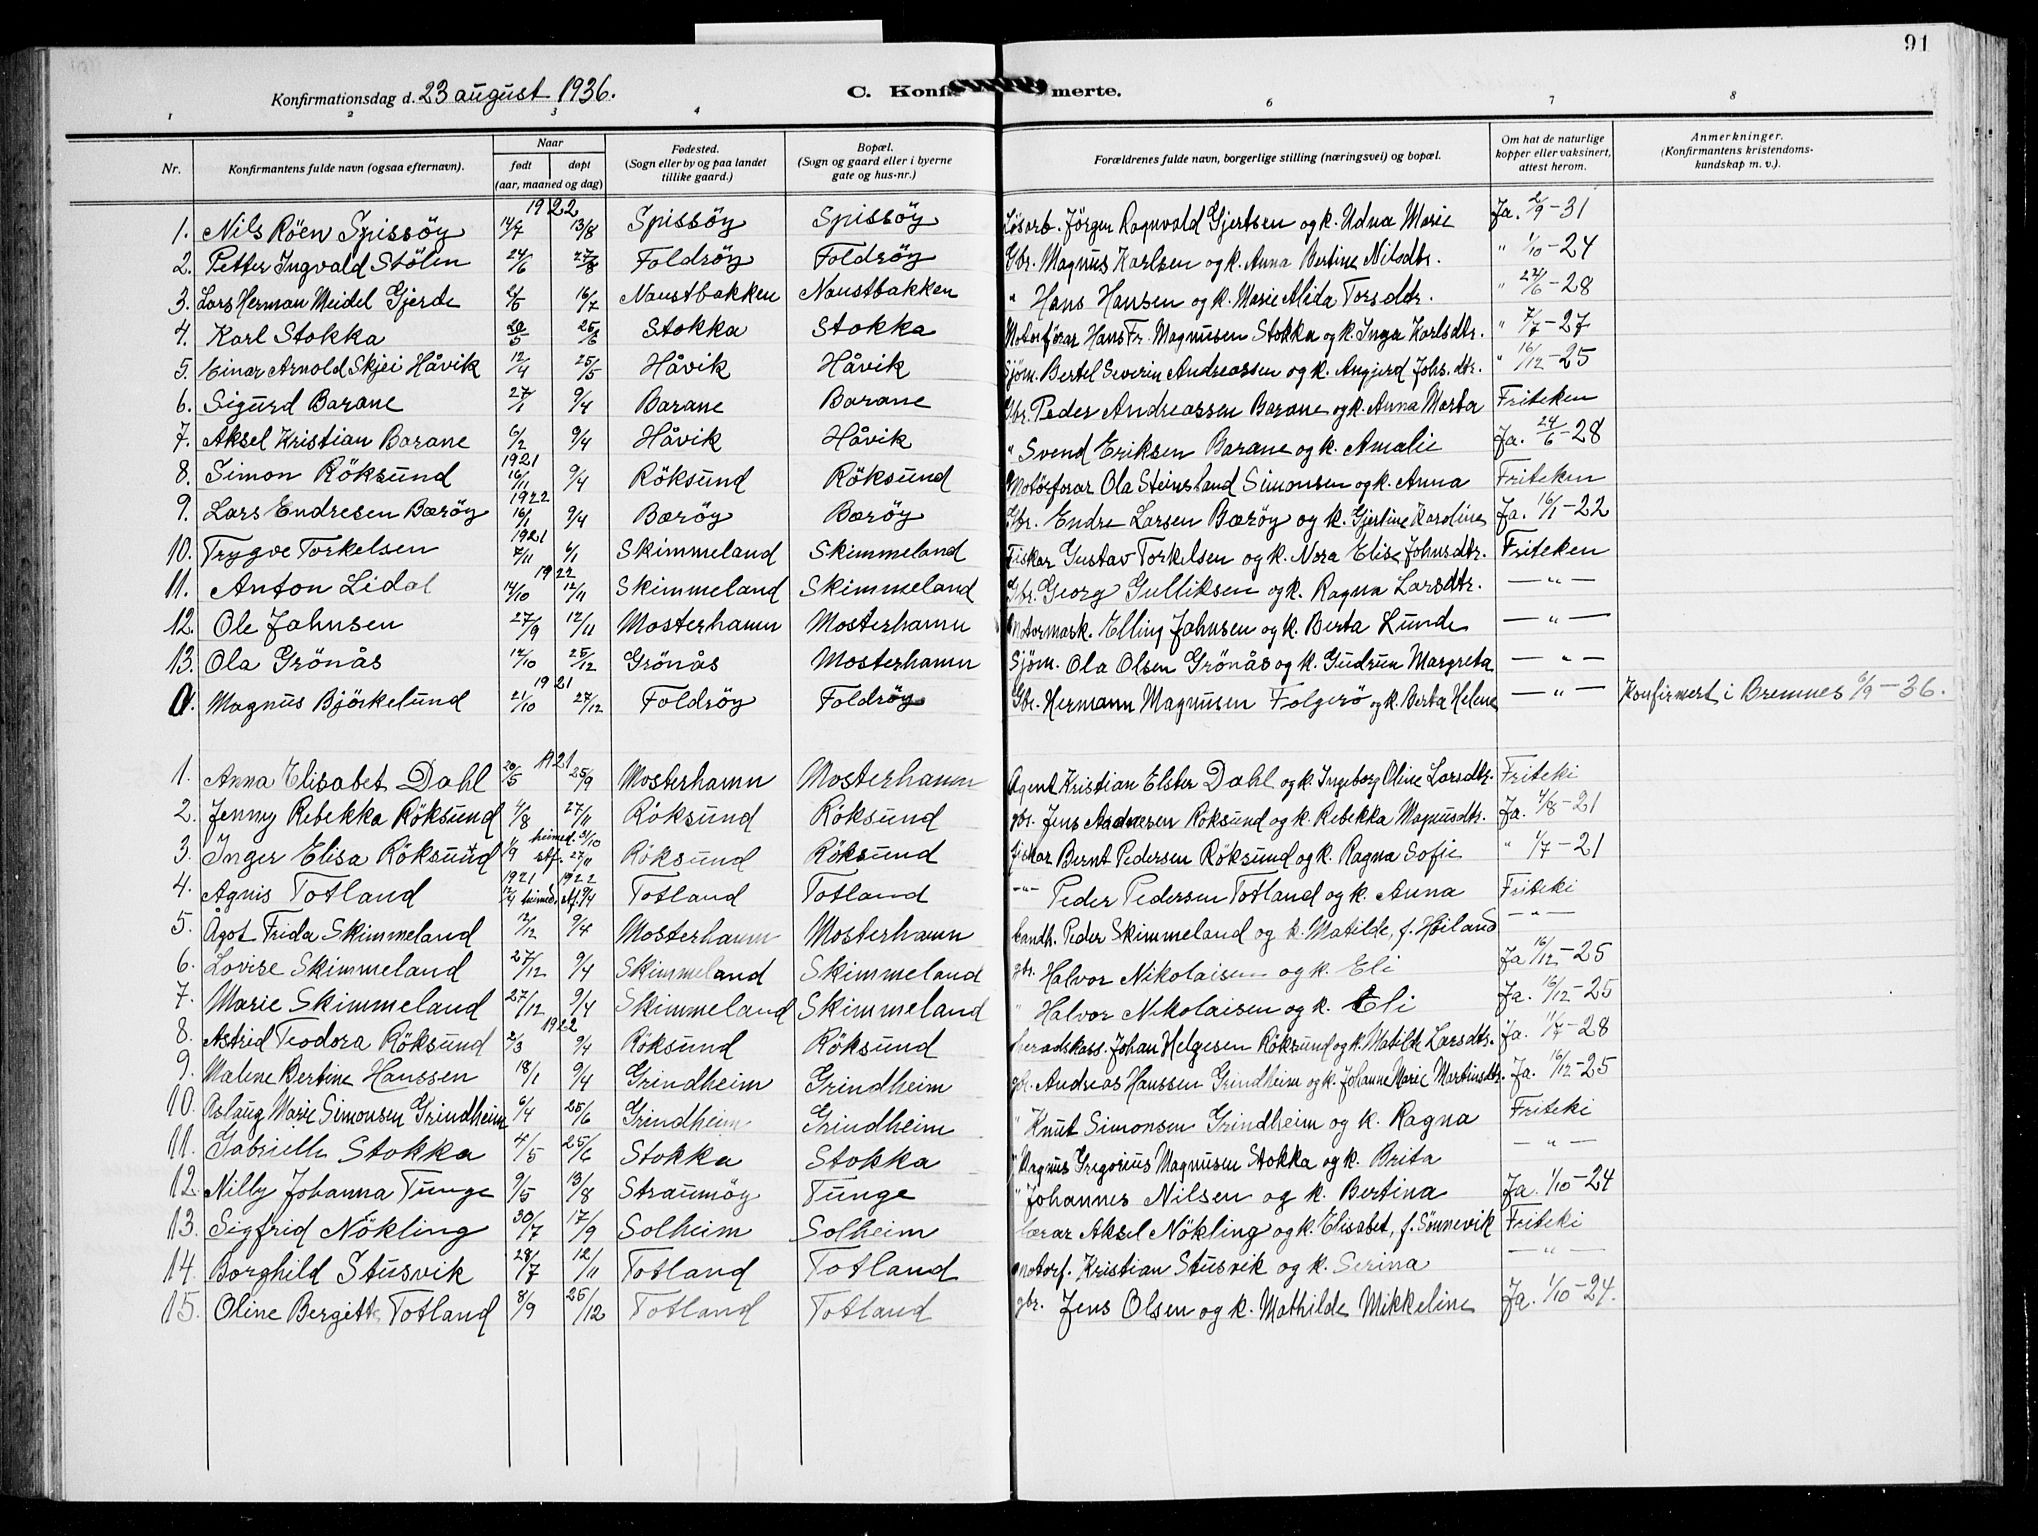 91
Konfirmationsdag d. 23 august 1936. C. Konfirmerte.
1 2 3 4 5 6 7 8
Nr. Konfirmantens fulde navn (ogsaa efternavn). Naar født døpt (aar, maaned og dag) Fødested. (Sogn eller by og paa landet tillike gaard.) Bopæl. (Sogn og gaard eller i byerne gate og hus-nr.) Forældrenes fulde navn, borgerlige stilling (næringsvei) og bopæl. Om hat de naturlige kopper eller vaksinert, attest herom. Anmerkninger. (Konfirmantens kristendomskundskap m. v.).
1922
1. Nils Röen Spissöy 14/7 13/8 Spissöy Spissöy Lösarb. Jörgen Ragnvald Gjertsen og k. Udna Marie Ja. 2/9-31
2. Petter Ingvald Stölen 24/6 27/8 Foldröy Foldröy Gbr. Magnus Karlsen og k. Anna Bertine Nilsdtr. " 1/10-24
3. Lars Herman Meidel Gjerde 2/5 16/7 Naustbakken Naustbakken " Hans Hansen og k. Marie Alida Torsdtr. " 22/6-28
4. Karl Stokka 20/5 25/6 Stokka Stokka Motorförar Hans Fr. Magnusen Stokka og k. Inga Karlsdtr. " 7/7-27
5. Einar Arnold Skjei Håvik 12/4 25/5 Håvik Håvik Sjöm. Bertel Severin Andreassen og k. Angjerd Johs.dtr. " 16/12-25
6. Sigurd Barane 27/1 9/4 Barane Barane Gbr. Peder Andreassen Barane og k. Anna Marta Friteken
7. Aksel Kristian Barane 6/2 9/4 Håvik Håvik " Svend Eriksen Barane og k. Amalie Ja. 24/6-28
1921
8. Simon Röksund 16/11 9/4 Röksund Röksund Motorförar Ola Steinsland Simonsen og k. Anna Friteken
1922
9. Lars Endresen Bæröy 16/1 9/4 Bæröy Bæröy Gbr. Endre Larsen Bæröy og k. Gjertine Karoline Ja. 16/1-22
1921
10. Trygve Torkelsen 7/11 6/1 Skimmeland Skimmeland Fiskar Gustav Torkelsen og k. Nora Elise Johnsdtr. Friteken
1922
11. Anton Lidal 14/10 12/11 Skimmeland Skimmeland Gbr. Georg Gulliksen og k. Ragna Larsdtr. — " —
12. Ole Jahnsen 27/9 12/11 Mosterhamn Mosterhamn Motormask. Elling Jahnsen og k. Berta Lunde — " —
13. Ola Grönås 12/10 25/12 Grönås Mosterhamn Sjöm. Ola Olsen Grönås og k. Gudrun Margreta — " —
1921
0. Magnus Björkelund 21/10 27/12 Foldröy Foldröy Gbr. Hermann Magnusen Folgerö og k. Berta Helene — " — Konfirmert i Bremnes 6/9-36.
1921
1. Anna Elisabet Dahl 20/5 25/9 Mosterhamn Mosterhamn Agent Kristian Elster Dahl og k. Ingeborg Oline Larsdtr. Friteki
2. Jenny Rebekka Röksund 4/8 27/11 Röksund Röksund gbr. Jens Andersen Röksund og k. Rebekka Magnusdtr. Ja. 4/8-21
3. Inger Elisa Röksund 1/9 heimed. 31/10 stf. 27/11 Röksund Röksund fiskar Bernt Pedersen Röksund og k. Ragna Sofie " 1/7-21
1921 1922
4. Agnis Totland 12/4 heimed. stf. 9/4 Totland Totland -"- Peder Pedersen Totland og k. Anna Friteki
5. Ågot Frida Skimmeland 12/12 9/4 Mosterhamn Mosterhamn landh. Peder Skimmeland og k. Matilde, f. Höiland — " —
6. Lovise Skimmeland 27/12 9/4 Skimmeland Skimmeland gbr. Halvor Nikolaisen og k. Eli Ja 16/12-25
7. Marie Skimmeland 27/12 9/4 Skimmeland Skimmeland " Halvor Nikolaisen og k. Eli Ja. 16/12-25
1922
8. Astrid Teodora Röksund 2/3 9/4 Röksund Röksund heradskass. Johan Helgesen Röksund og k. Matilde Larsdtr. Ja. 11/7-28
9. Malene Bertine Hanssen 18/1 9/4 Grindheim Grindheim gbr. Andreas Hanssen Grindheim og k. Johanne Marie Martinsdtr. Ja. 16/12-25
10. Aslaug Marie Simonsen Grindheim 6/4 25/6 Grindheim Grindheim " Knut Simonsen Grindheim og k. Ragna Friteki
11. Gabrielle Stokka 4/5 25/6 Stokka Stokka " Magnus Gregorius Magnusen Stokka og k. Brita — " —
12. Nilly Johanna Tunge 9/5 13/8 Straumöy Tunge " Johannes Nilsen og k. Bertina Ja. 1/10-24
13. Sigfrid Nökling 30/7 17/9 Solheim Solheim lærar Aksel Nökling og k. Elisabet, f. Sönnevik Friteki
14. Borghild Stusvik 28/7 12/11 Totland Totland motorf. Kristian Stusvik og k. Serina — " —
15. Oline Bergitte Totland 8/9 25/12 Totland Totland gbr. Jens Olsen og k. Mathilde Mikkeline Ja. 1/10-24.